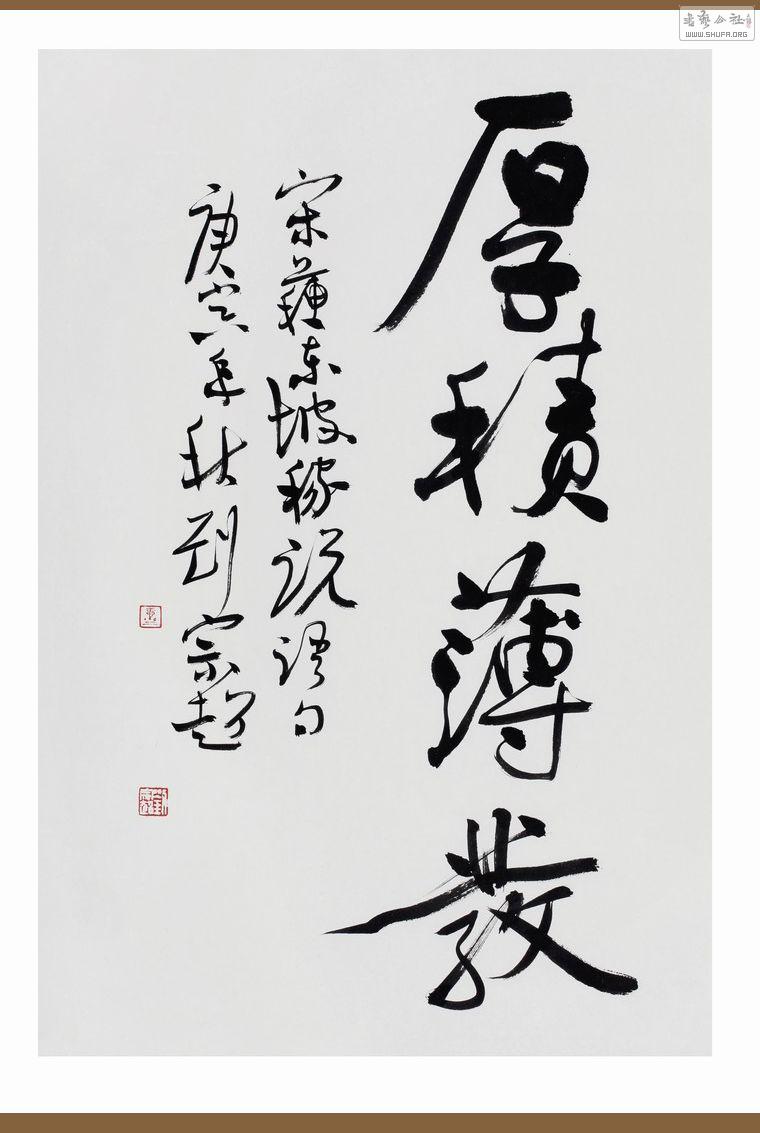 厚積薄發
宋蘇東坡稼说语句
庚寅年秋刘宗超
書藝公社
WWW.SHUFA.ORG